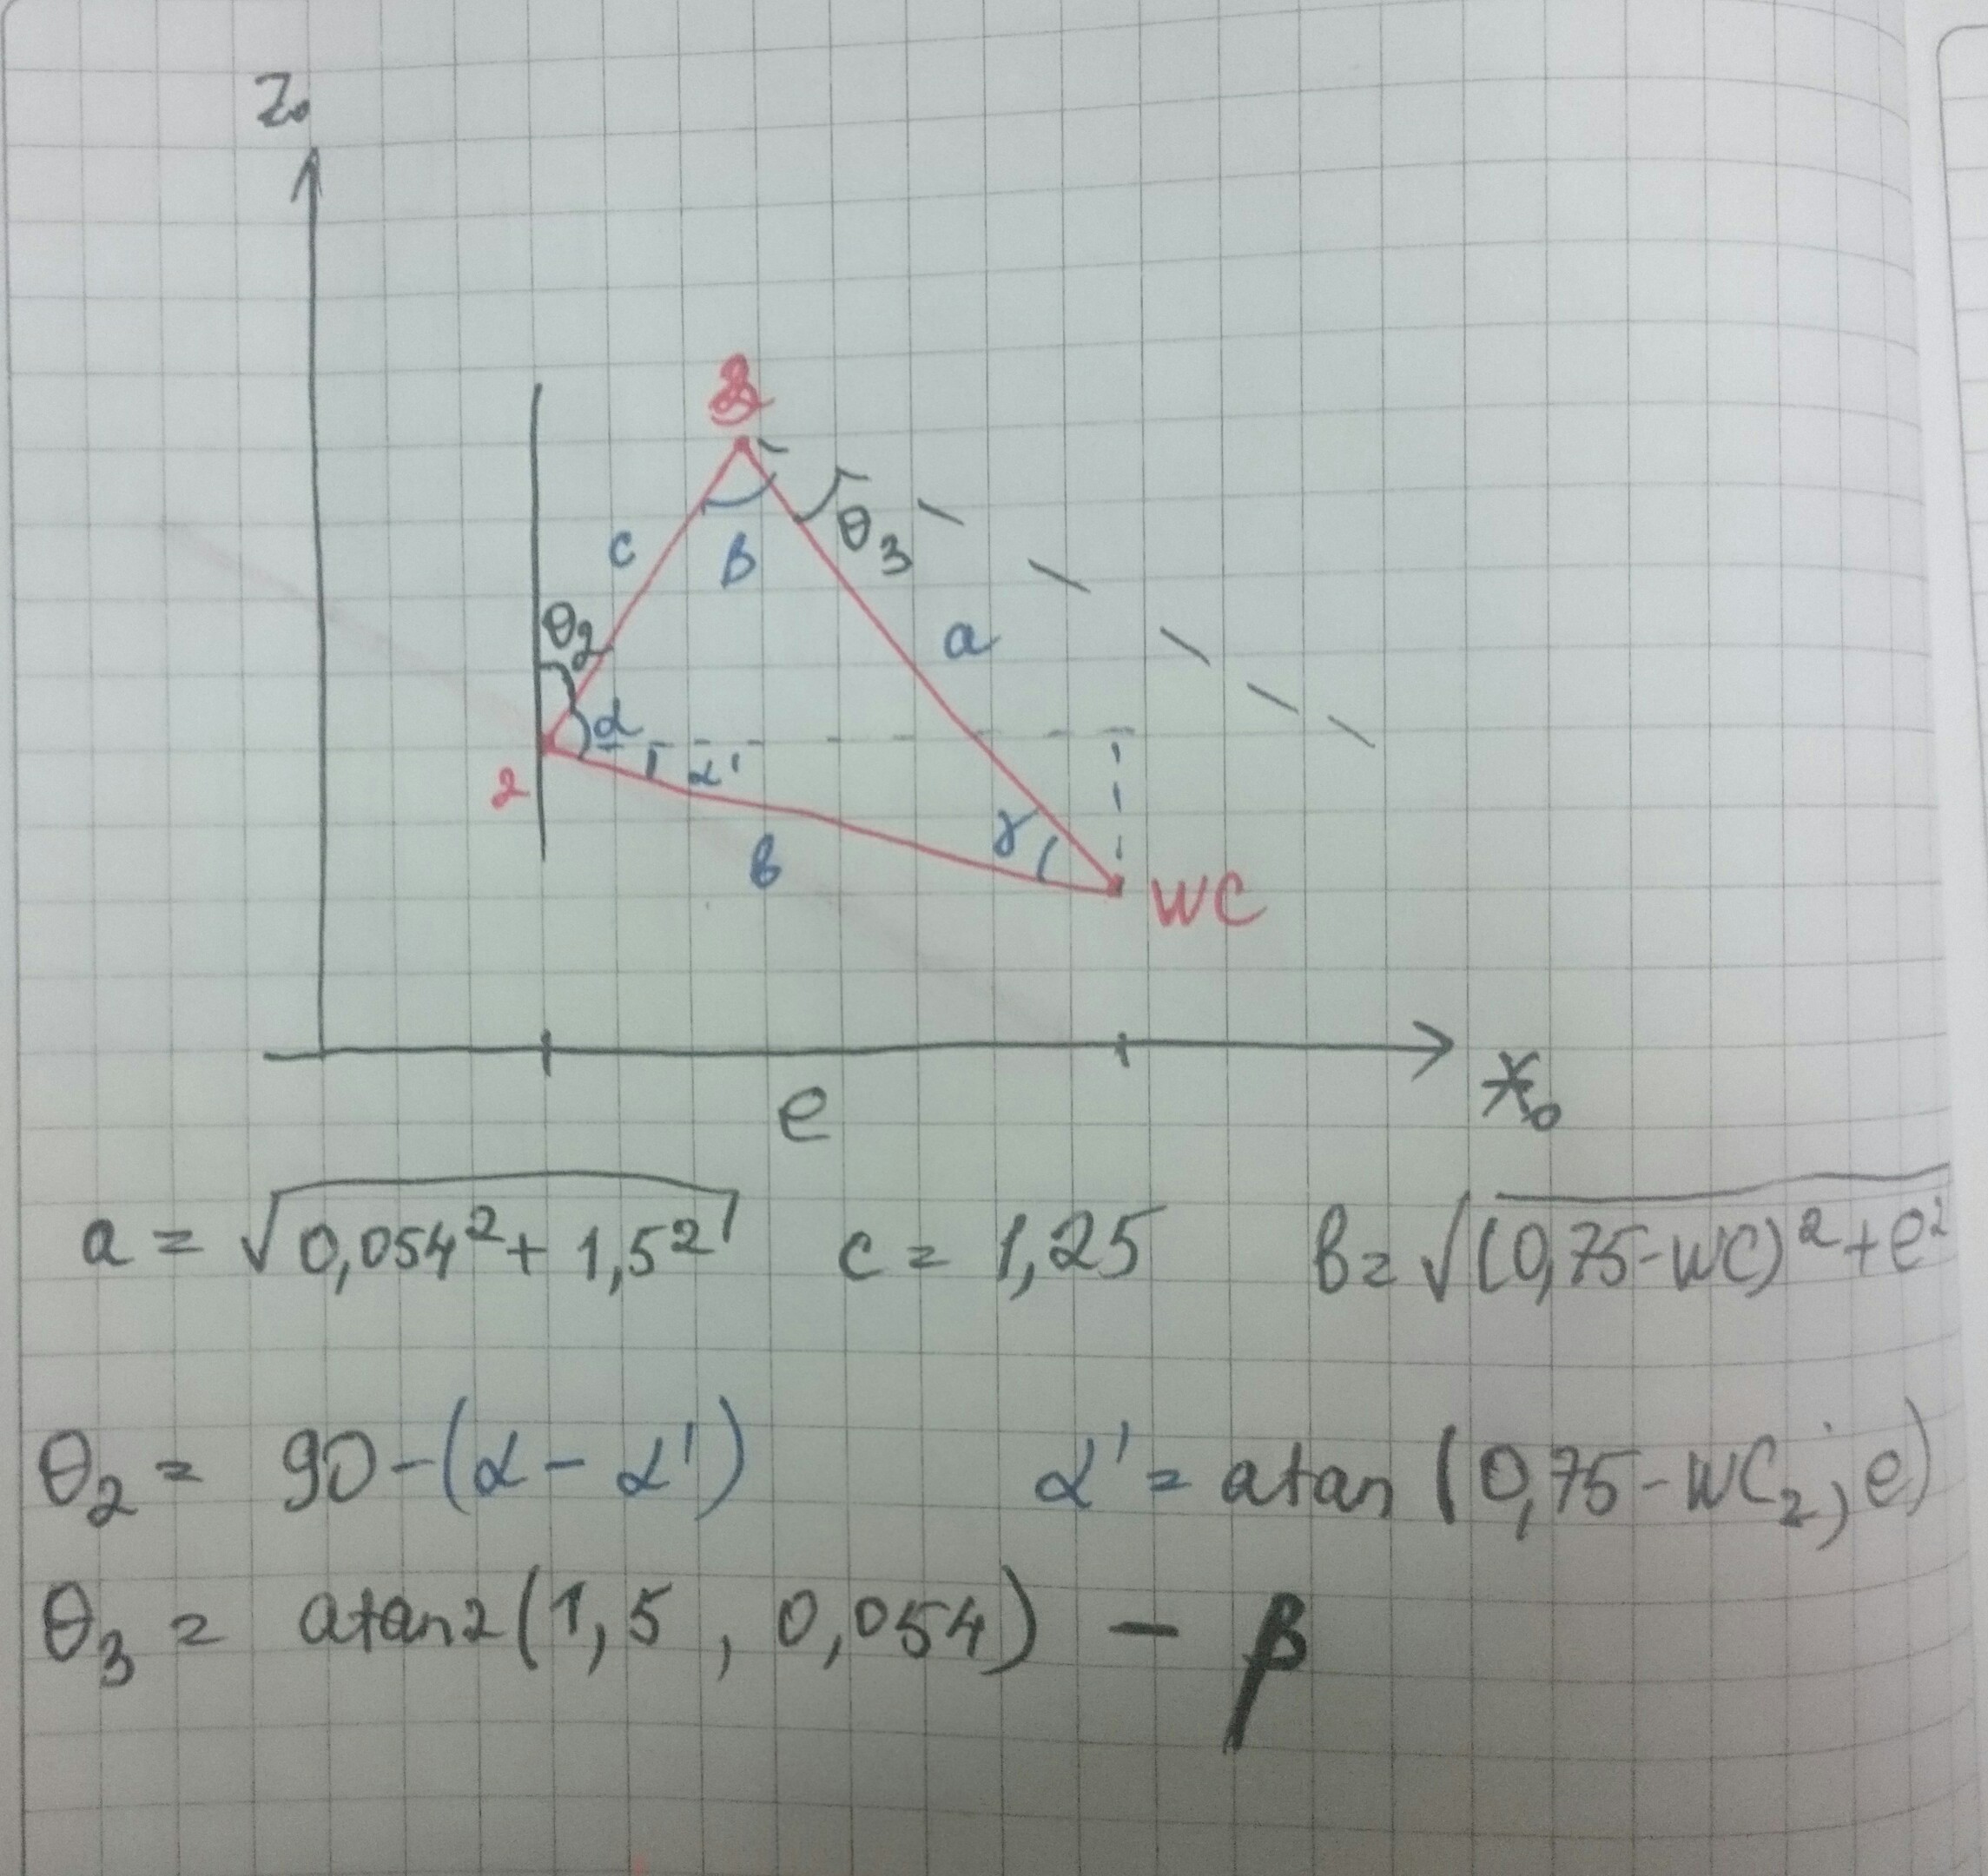 Z₀
3
c
β
θ₃
a
θ₂
α
α'
2
γ
b
WC
e
X₀
a = √(0,054² + 1,5²) c = 1,25 b = √((0,75-WC)² + e²)
θ₂ = 90-(α - α') α' = atan (0,75-WC₂; e)
θ₃ = atan2(1,5 , 0,054) - β